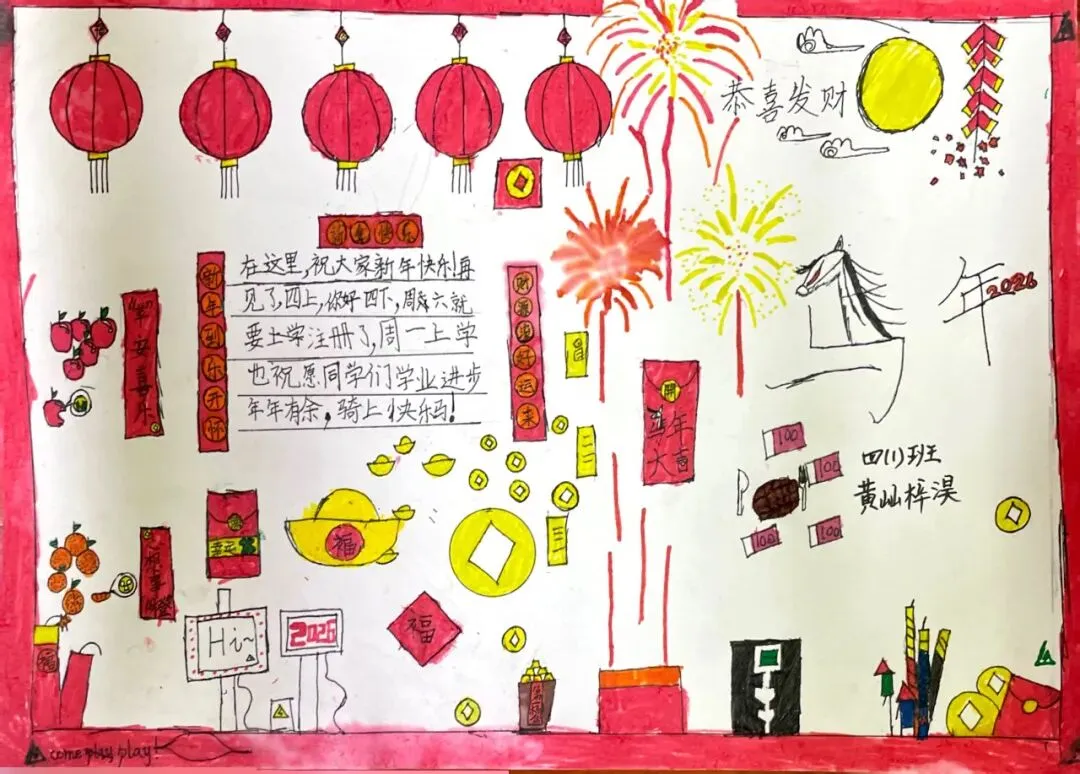 恭喜发财
新年快乐
在这里,祝大家新年快乐!再
见了四上,你好四下,周六就
要上学注册了,周一上学
也祝愿同学们学业进步
年年有余,骑上快乐马!
新年到乐开怀
财源滚滚好运来
年2026
100
100
100
100
馬年
大喜
四川班
福
幸运
福
Hi~
2026
福
come play play!